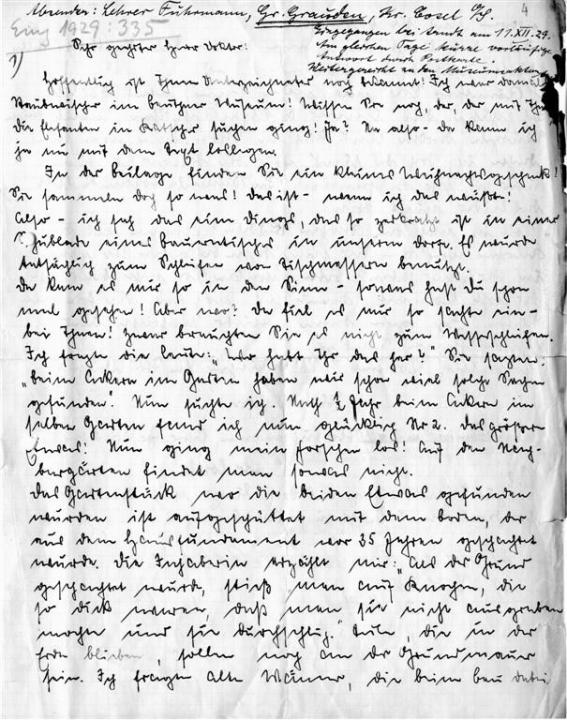 Absender: Lehrer Fuhrmann, Gr. Grauden, Kr. Cosel O/S.
4
Eing 1929:335
Eingegangen bei Arndt am 17.XII.29.
Am gleichen Tage kurze vorläufige
Antwort durch Postkarte.
Weitergereicht an den Museumsakten
Sehr geehrter Herr Doktor!
1)
Hoffentlich ist Ihnen Unterzeichneter noch bekannt! Ich war damals
im Beuthner Museum! Wissen Sie noch, der, der mit Ihnen
die Elefanten in Katscher suchen ging! Ja? Na also - da kann ich
ja nu mit dem Text loslegen.
In der Beilage finden Sie ein kleines Weihnachtsgeschenk!
Sie sammeln doch so was! Das ist - wenn ich das wüßte!
Also - ich sah das eine Dings, das so zerkratzt ist in einer
Tischlade eines Bauerntisches in unserm Dorfe. Es wurde
tatsächlich zum Schleifen von Tischmessern benützt.
Da kam es mir so in den Sinn - sowas hast Du schon
mal gesehen! Aber wo? Da fiel es mir so sachte ein -
bei Ihnen! Zwar brauchten Sie es nicht zum Messerschleifen.
Ich fragte die Leute: „Wo habt Ihr das her?" Sie sagten:
„beim Ackern im Garten haben wir schon viel solche Sachen
gefunden". Nun suchte ich. Nach ½ Jahr beim Ackern im
selben Garten fand ich nun glücklich Nr 2. das größere
Etwas! Nun ging mein Forschen los! Auf den Nach-
bargärten findet man sowas nicht.
Das Gartenstück wo die beiden Etwas gefunden
wurden ist aufgeschüttet mit dem Boden, der
aus dem Hausfundament vor 35 Jahren geschachtet
wurde. Die Inhaberin erzählt mir: „Als der Grund
geschachtet wurde, stieß man auf Knochen, die
so dick waren, daß man sie nicht ausgraben
mochte und sie durchschlug." Teile, die in der
Erde blieben, sollen noch an der Grundmauer
sein. Ich fragte alte Männer, die beim Bau dabei